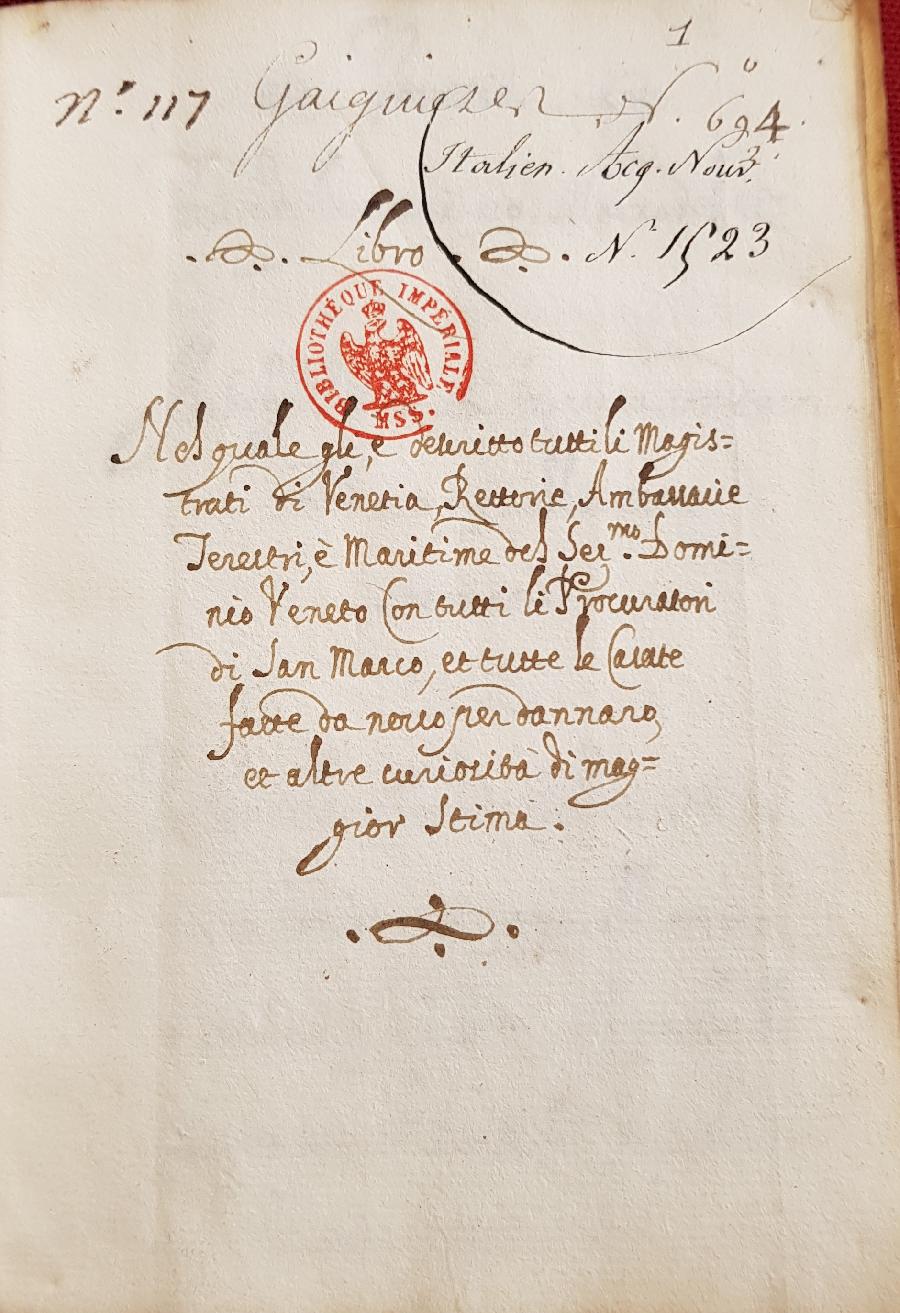 1
N.º 117 Gaignieres N.º 694.
Italien. Acq. Nouv.
. Libro . N.º 1523
BIBLIOTHÈQUE IMPÉRIALE MSS.
Nel quale gli, è descritto tutti li Magis=
trati di Venetia, Rettorie, Ambassarie
Terestri, è Maritime del Ser.mo Domi=
nio Veneto Con tutti li Procuratori
di San Marco, et tutte le Casate
fatte da novo per dannaro,
et altre curiosità di mag=
gior Stima.